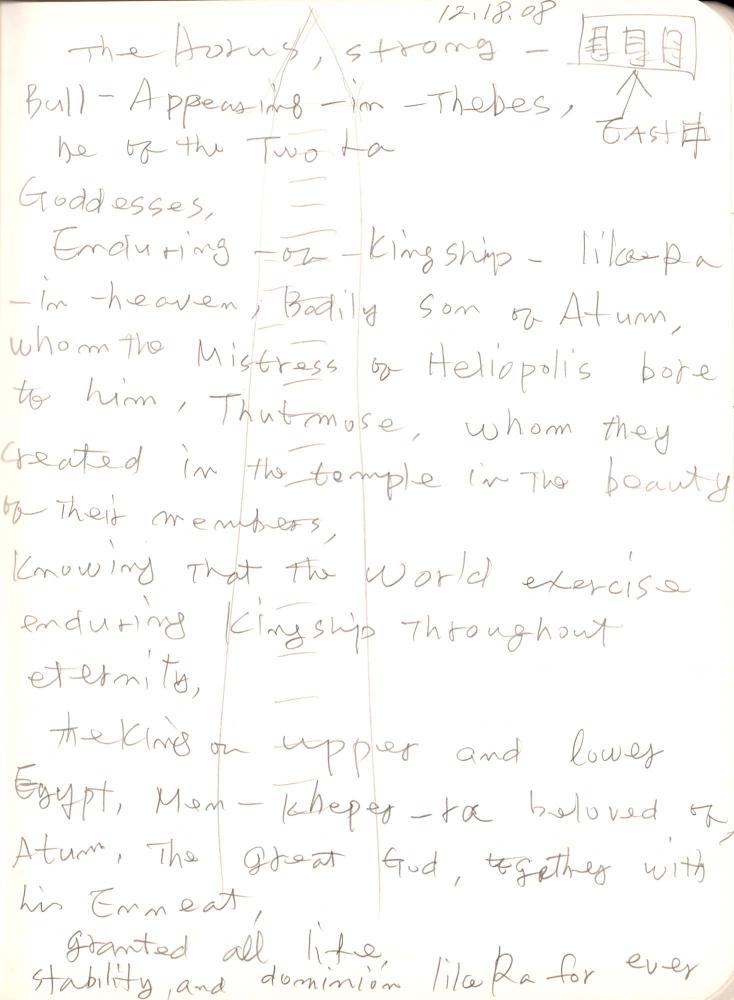 12.18.08
The Horus, strong -
Bull - Appearing - in - Thebes,
he of the Two ta
EAST中
Goddesses,
Enduring - of - Kingship - like Ra
- in - heaven, Bodily son of Atum,
whom the Mistress of Heliopolis bore
to him, Thutmose, whom they
created in the temple in The beauty
of Their members,
Knowing That The world exercise
enduring Kingship Throughout
eternity,
The King of upper and lower
Egypt, Men - kheper - ra beloved of,
Atum, The great God, together with
his Enneat,
granted all life,
stability, and dominion like Ra for ever